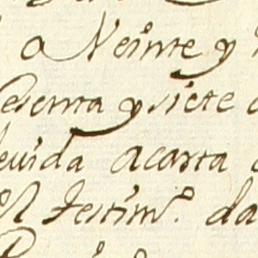 o Veinte y
esenta y siete
euida acosta
el Testim.º da